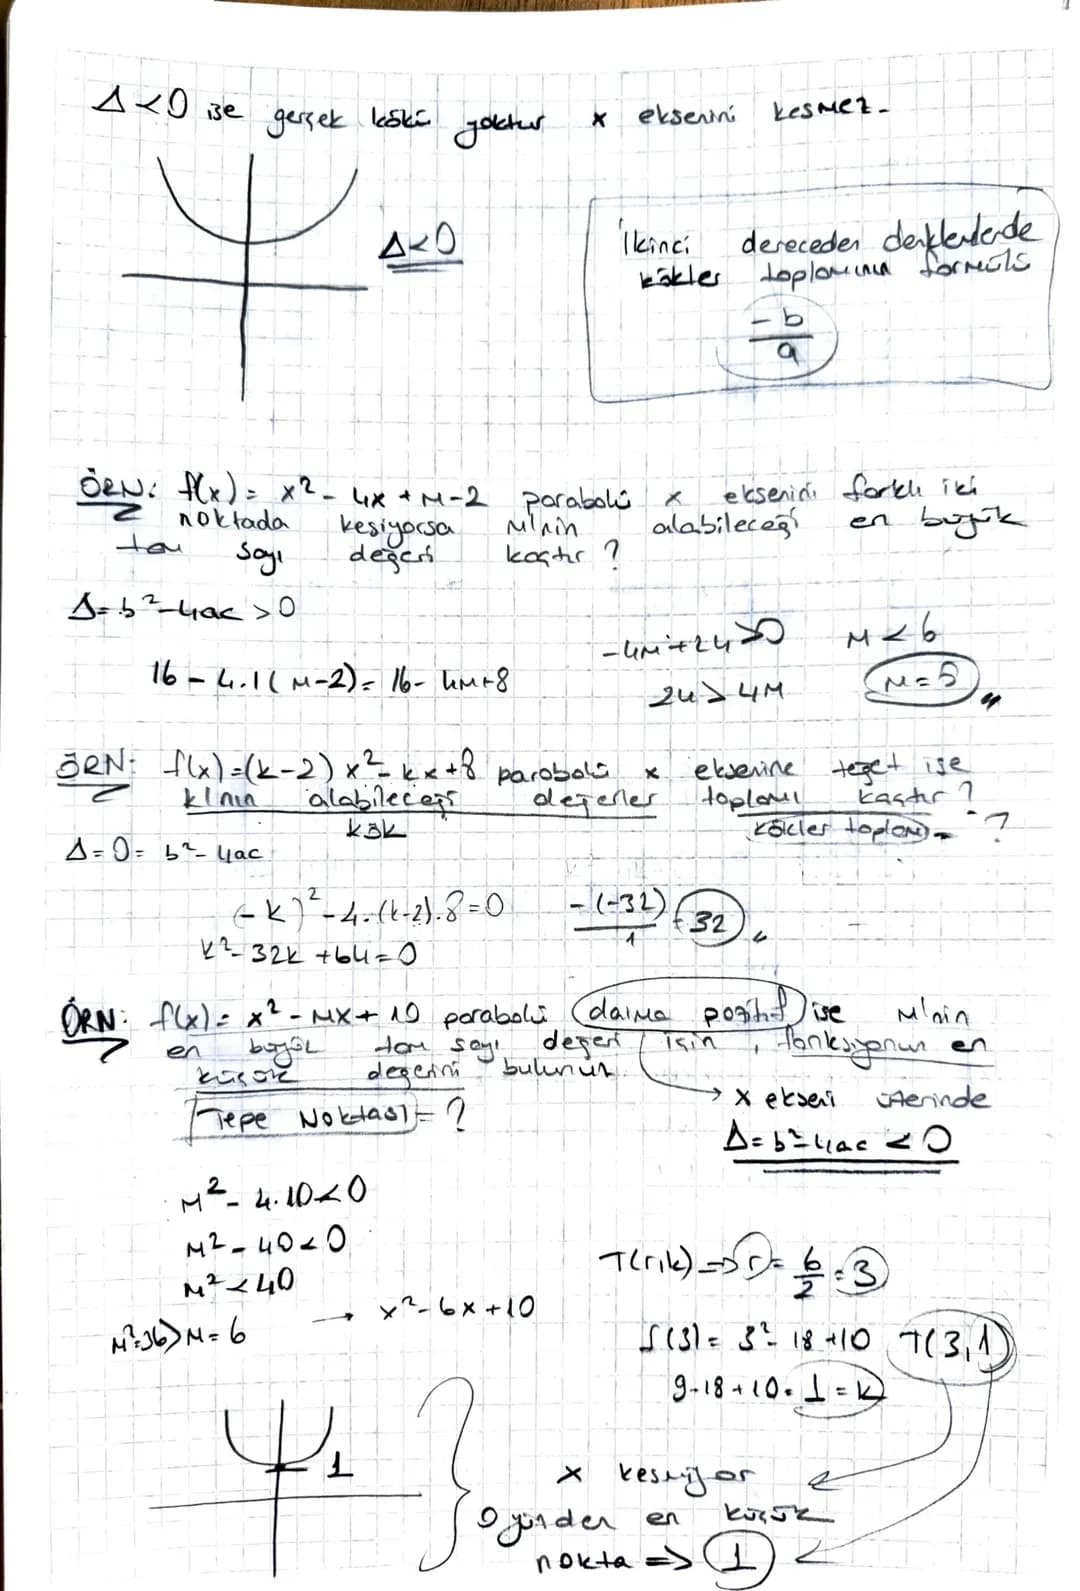 Δ<0 ise gerçek kökü yoktur x eksenini kesmez.
Δ<0
İkinci dereceden denklemlerde
kökler toplamının formülü
-b
a
ÖRN: f(x) = x² - 4x + M-2 parabolü x eksenini farklı iki
noktada kesiyorsa M'nin alabileceği en büyük
tam sayı değeri kaçtır ?
Δ = b²-4ac > 0
16 - 4.1(M-2) = 16 - 4M+8
-4M+24>0
24 > 4M
M < 6
M = 5
ÖRN: f(x) = (k-2)x² - kx+8 parabolü x eksenine teğet ise
k'nın alabileceği değerler toplamı kaçtır ?
kök
kökler toplamı = ?
Δ = 0 = b² - 4ac
(-k)² - 4.(k-2).8 = 0
k² - 32k + 64 = 0
-(-32)
1
= 32
ÖRN: f(x) = x² - Mx + 10 parabolü daima pozitif ise M'nin
en büyük tam sayı değeri için, fonksiyonun en
küçük değerini bulunuz.
→ x ekseni üzerinde
Tepe Noktası = ?
Δ = b²-4ac < 0
M² - 4.10 < 0
M² - 40 < 0
M² < 40
M²=36> M = 6
→ x² - 6x + 10
T(r,k) => r = 6/2 = 3
f(3) = 3² - 18 + 10
T(3,1)
9-18+10 = 1 = k
1
x kesmiyor
O yüzden en küçük
nokta => 1